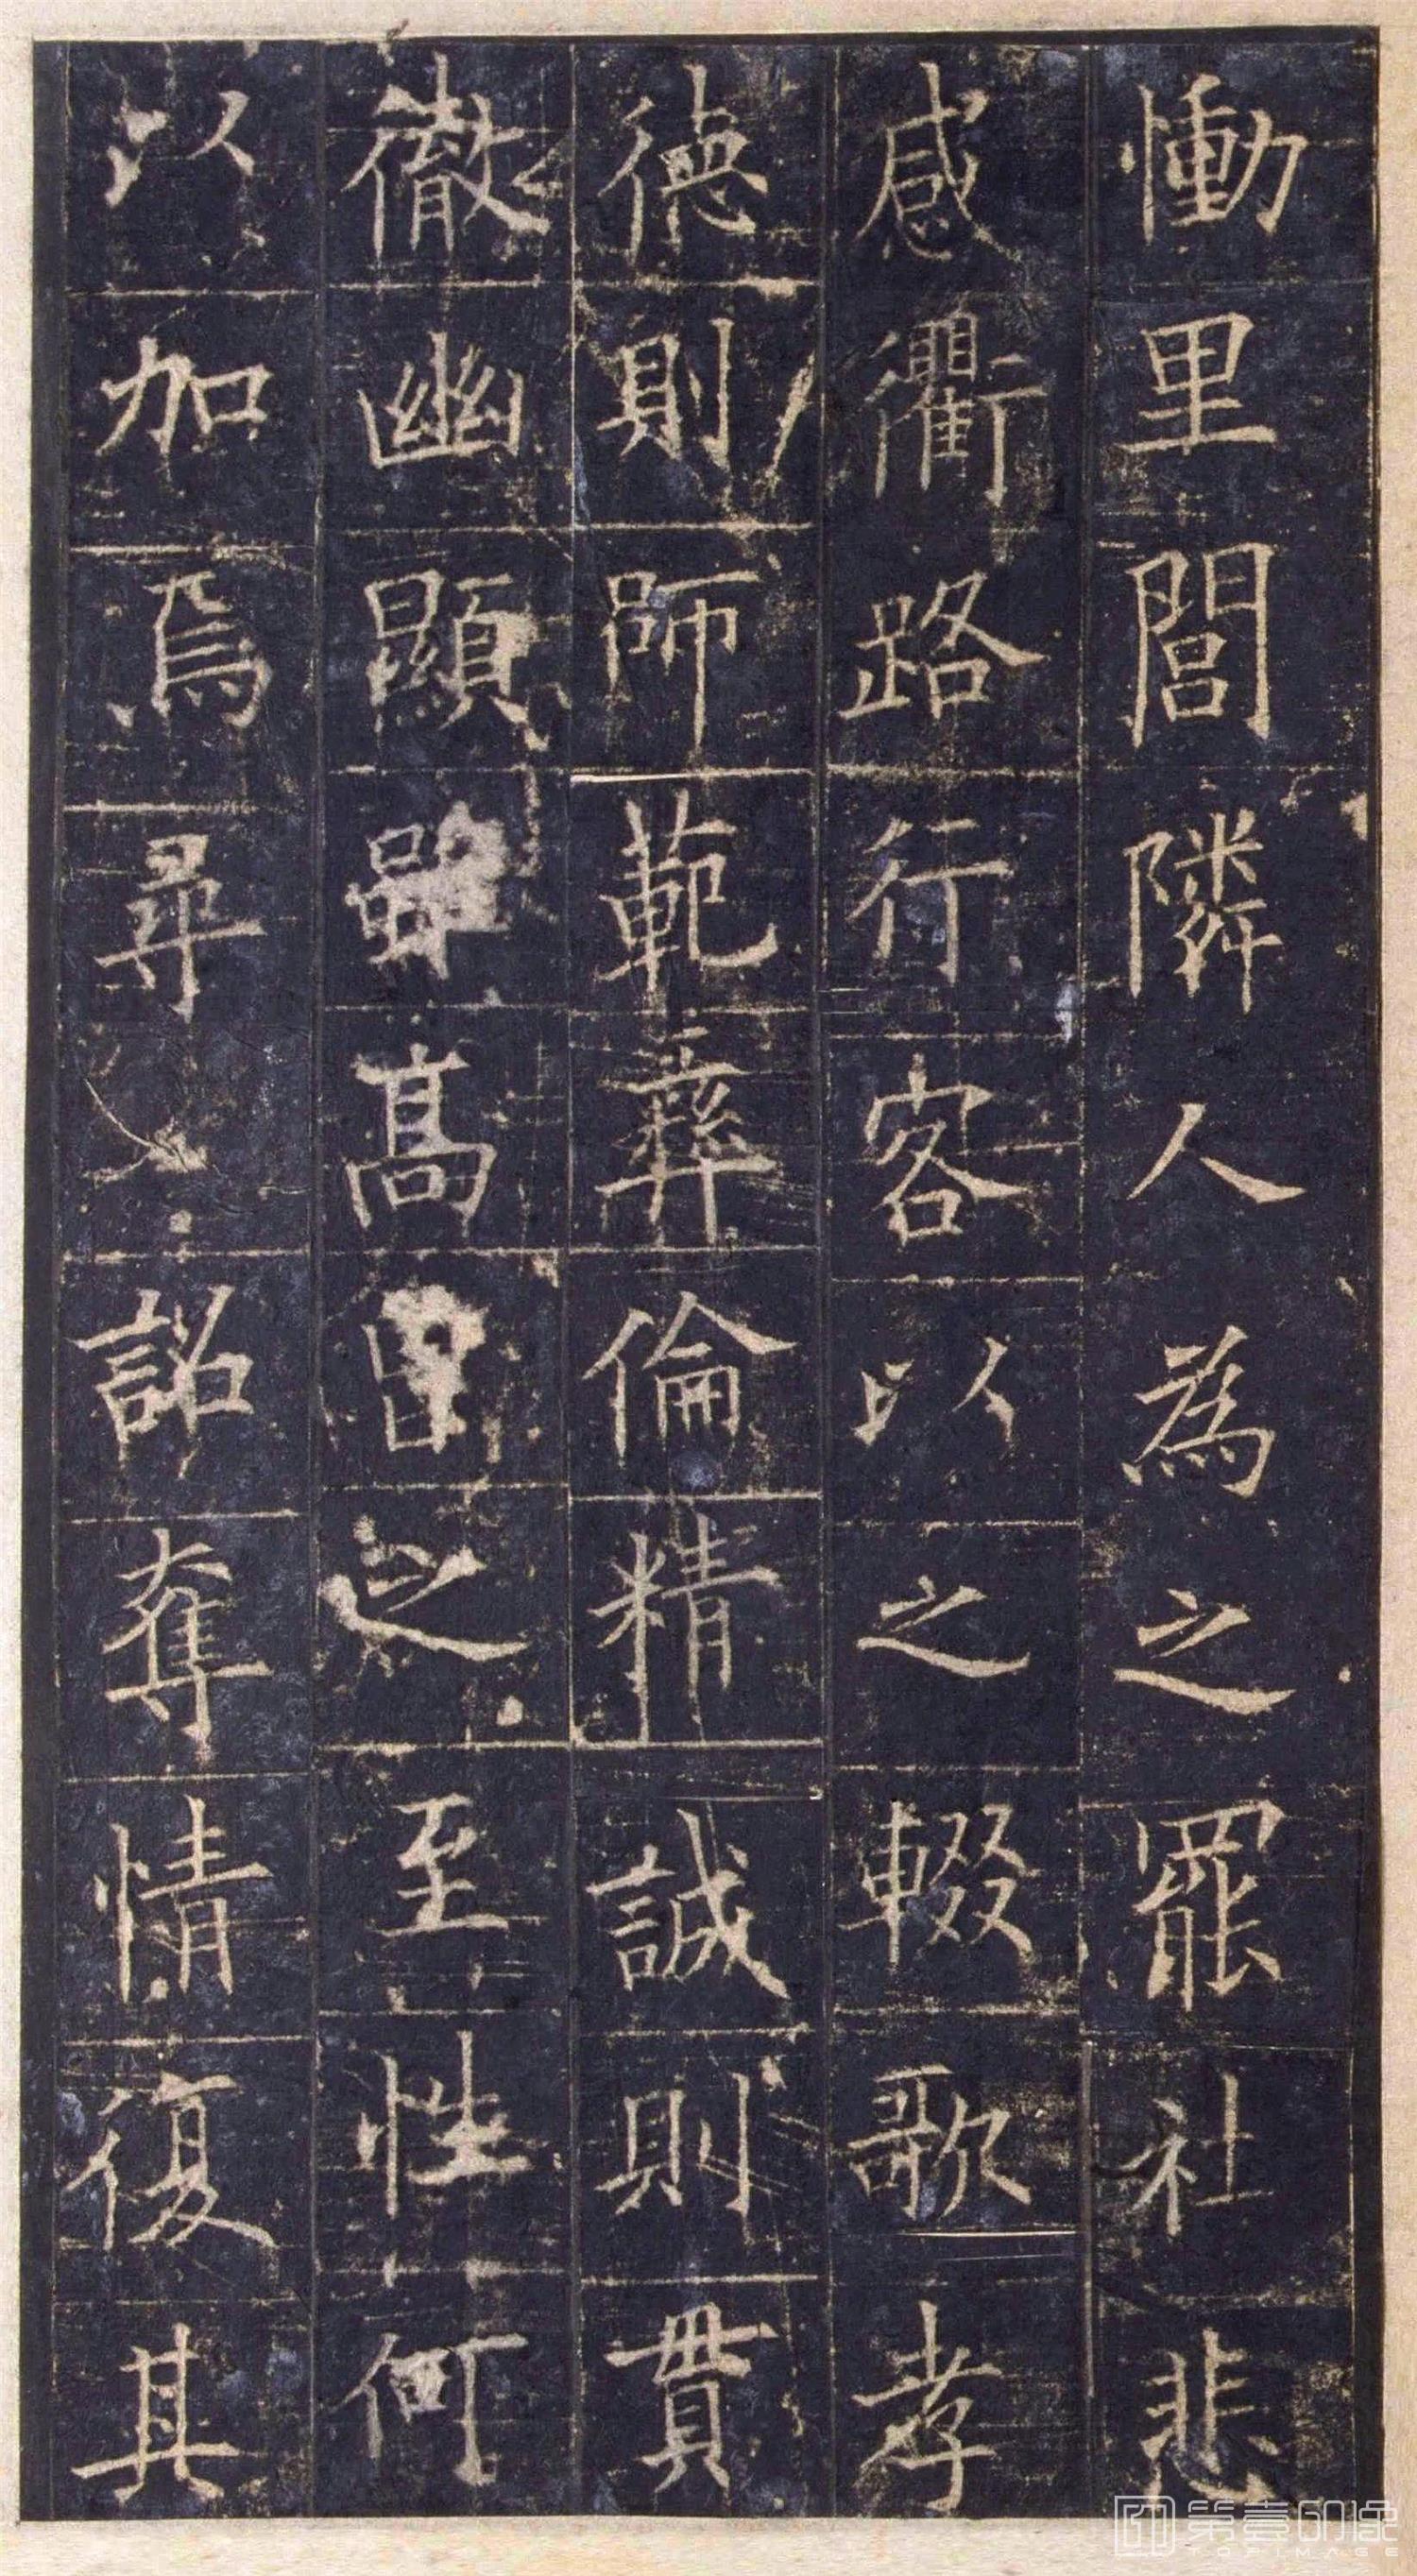 慟里閭隣人為之罷社悲
感衢路行客以之輟歌孝
徳則師範彝倫精誠則貫
徹幽顯雖髙曾之至性何
以加焉尋詔奪情復其
第壹印像
TOPIMAGE